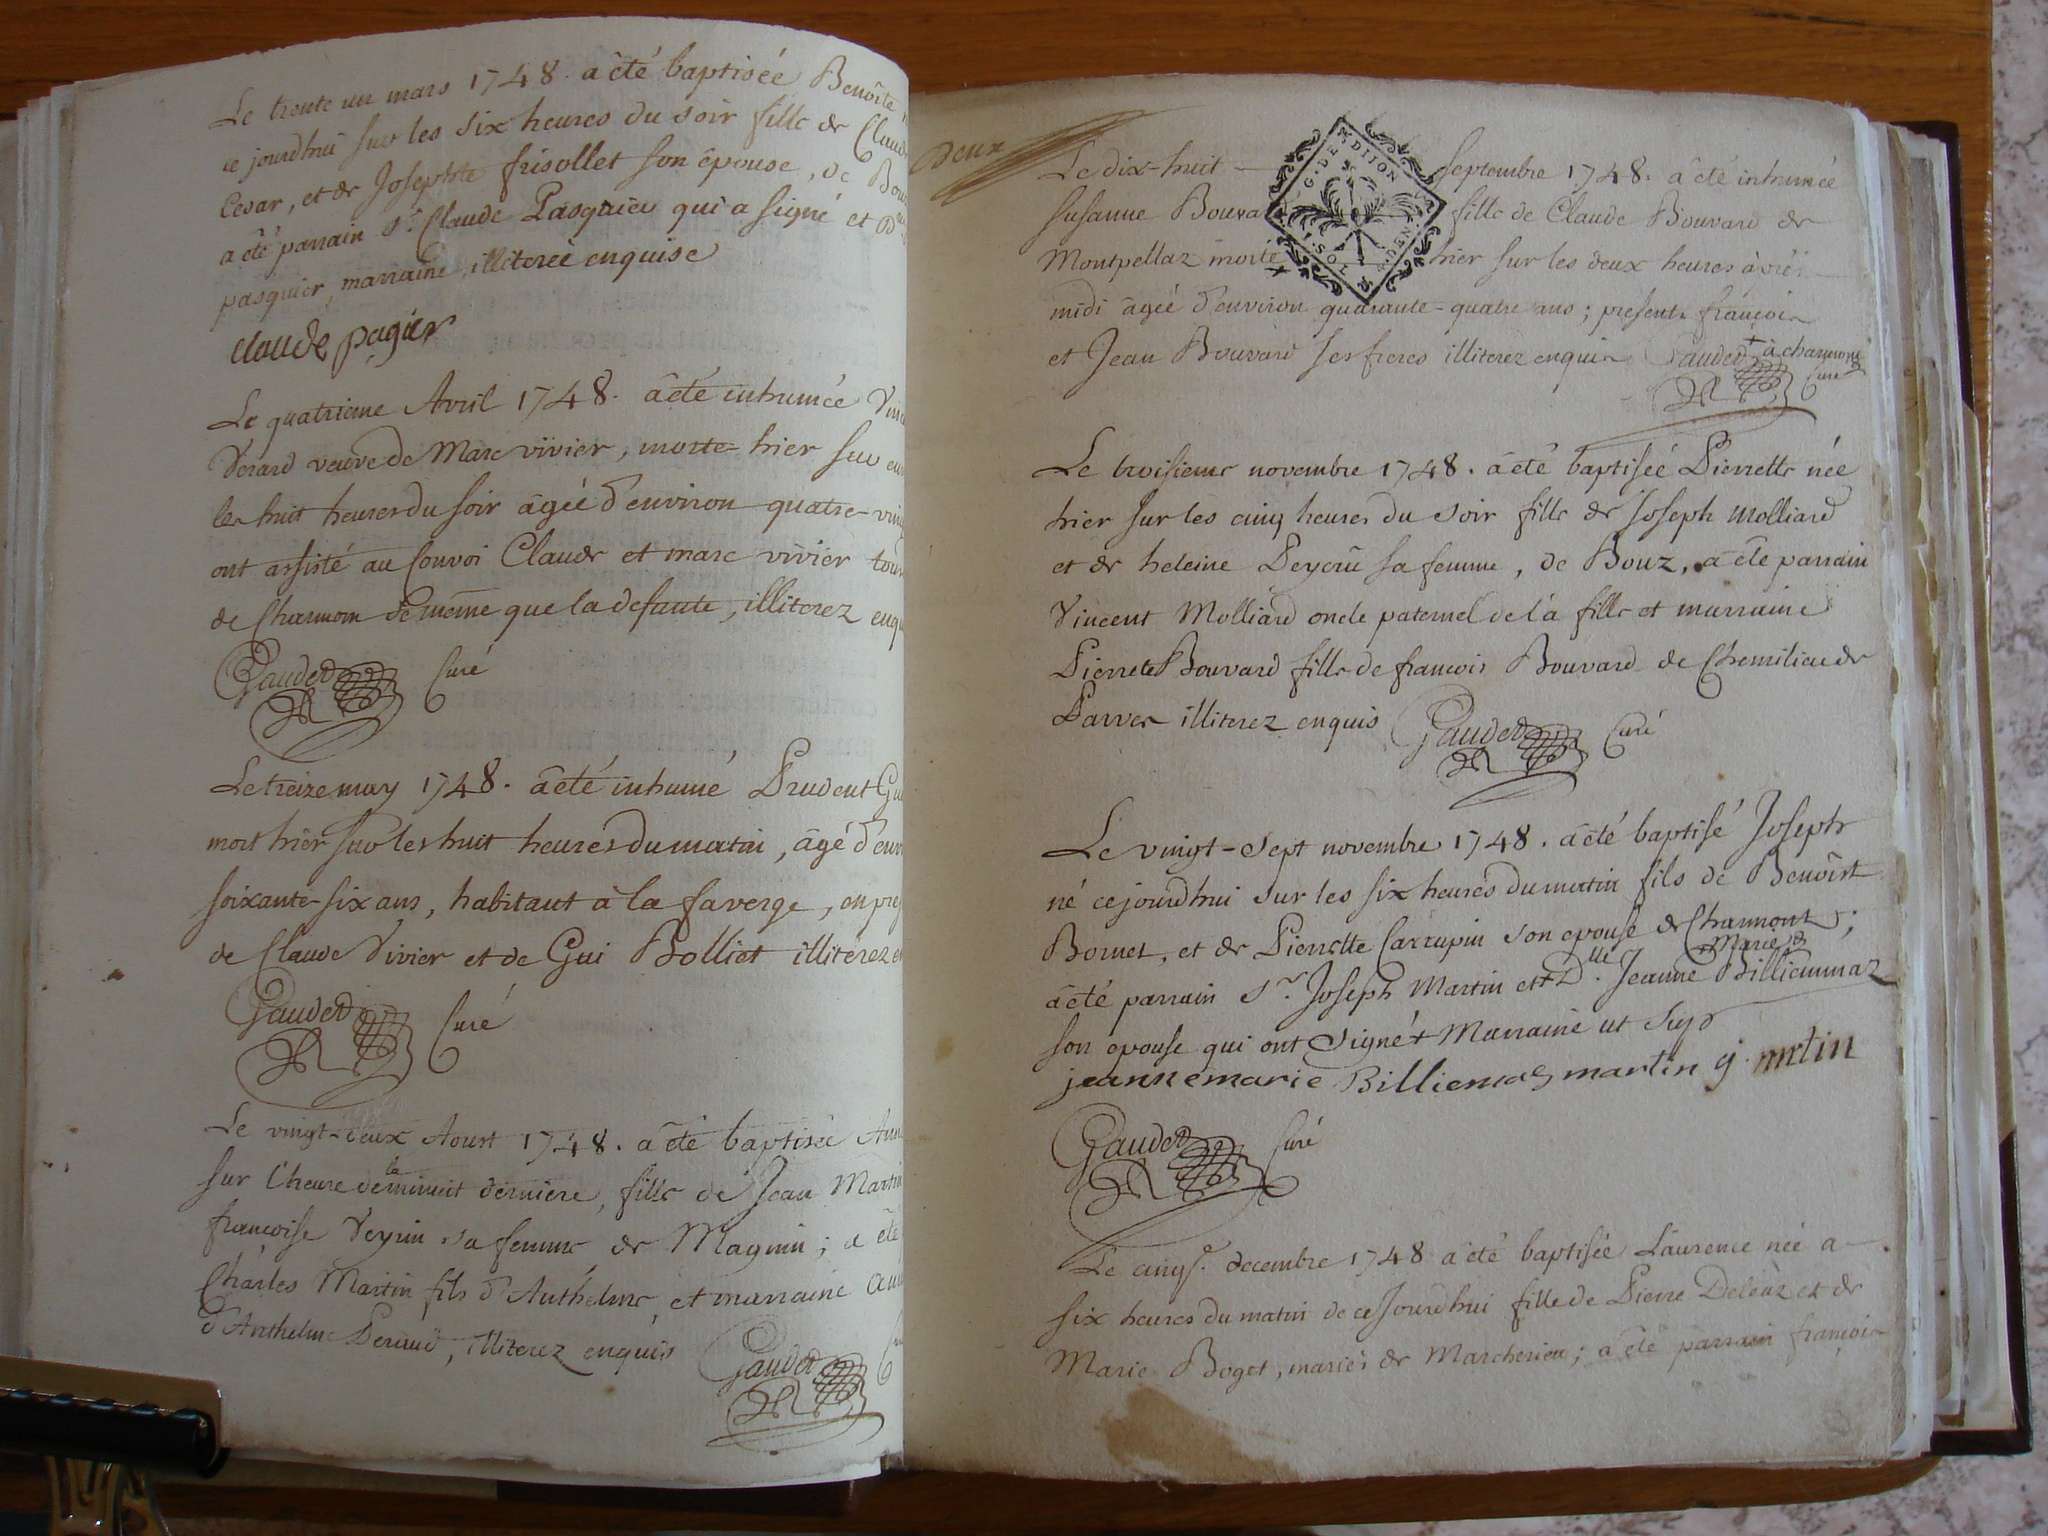 Le trente un mars 1748. a êté baptisée Benoîte
ce jourdhui sur les six heures du soir fille de Claude
Cesar, et de Josephte frisollet son épouse, de
a êté parrain Sr. Claude Pasquier qui a signé et
pasquier, marraine, illiterée enquise
claude pagier
Le quatrieme Avril 1748. a êté inhumée
Verard veuve de Marc vivier, morte hier sur
les huit heures du soir âgée d'environ quatre-
ont assisté au Convoi Claude et marc vivier
de Charmont de même que la defunte, illiterez
Gaudet Curé
Le treize may 1748. a êté inhumé Prudent
mort hier sur les huit heures du matin, âgé
soixante-six ans, habitant à la faverge, en
de Claude Vivier et de Gui Bolliet illiterez
Gaudet Curé
Le vingt-deux Aoust 1748. a êté baptisée
sur l'heure de la minuit derniere, fille de Jean Martin
francoise Veyrin sa femme de Magnin; a êté
Charles Martin fils d'Anthelme, et marraine
d'Anthelme Peraud, illiterez enquis
Gaudet
Deux
G. DE DIJON
Le dix-huit septembre 1748. a êté inhumée
Susanne Bouvard fille de Claude Bouvard de
Montpellaz morte hier sur les deux heures après
midi âgée d'environ quarante-quatre ans; presents françois
et Jean Bouvard ses freres illiterez enquis Gaudet + à charmont
Curé
Le troisieme novembre 1748. a êté baptisée Pierrette née
hier sur les cinq heures du soir fille de Joseph Molliard
et de heleine Peycru sa femme, de Bouz, a êté parrain
Vincent Molliard oncle paternel de la fille et marraine
Pierrete Bouvard fille de francois Bouvard de Chemilieu de
Parves illiterez enquis Gaudet Curé
Le vingt-sept novembre 1748. a êté baptisé Joseph
né cejourdhui sur les six heures du matin fils de Benoîst
Bornet, et de Pierrette Carrupin son epouse de Charmont;
Marie
a êté parrain Sr. Joseph Martin et Dlle. Jeanne Billiemmaz
son epouse qui ont Signé + Marraine ut Supr
jeanne marie Billiemas martin g. mrtin
Gaudet Curé
Le cinqe. decembre 1748 a été baptisée Laurence née a
six heures du matin de ce Jourdhui fille de Pierre Deleaz et de
Marie Boget, mariés de Marcherieu; a êté parrain françois